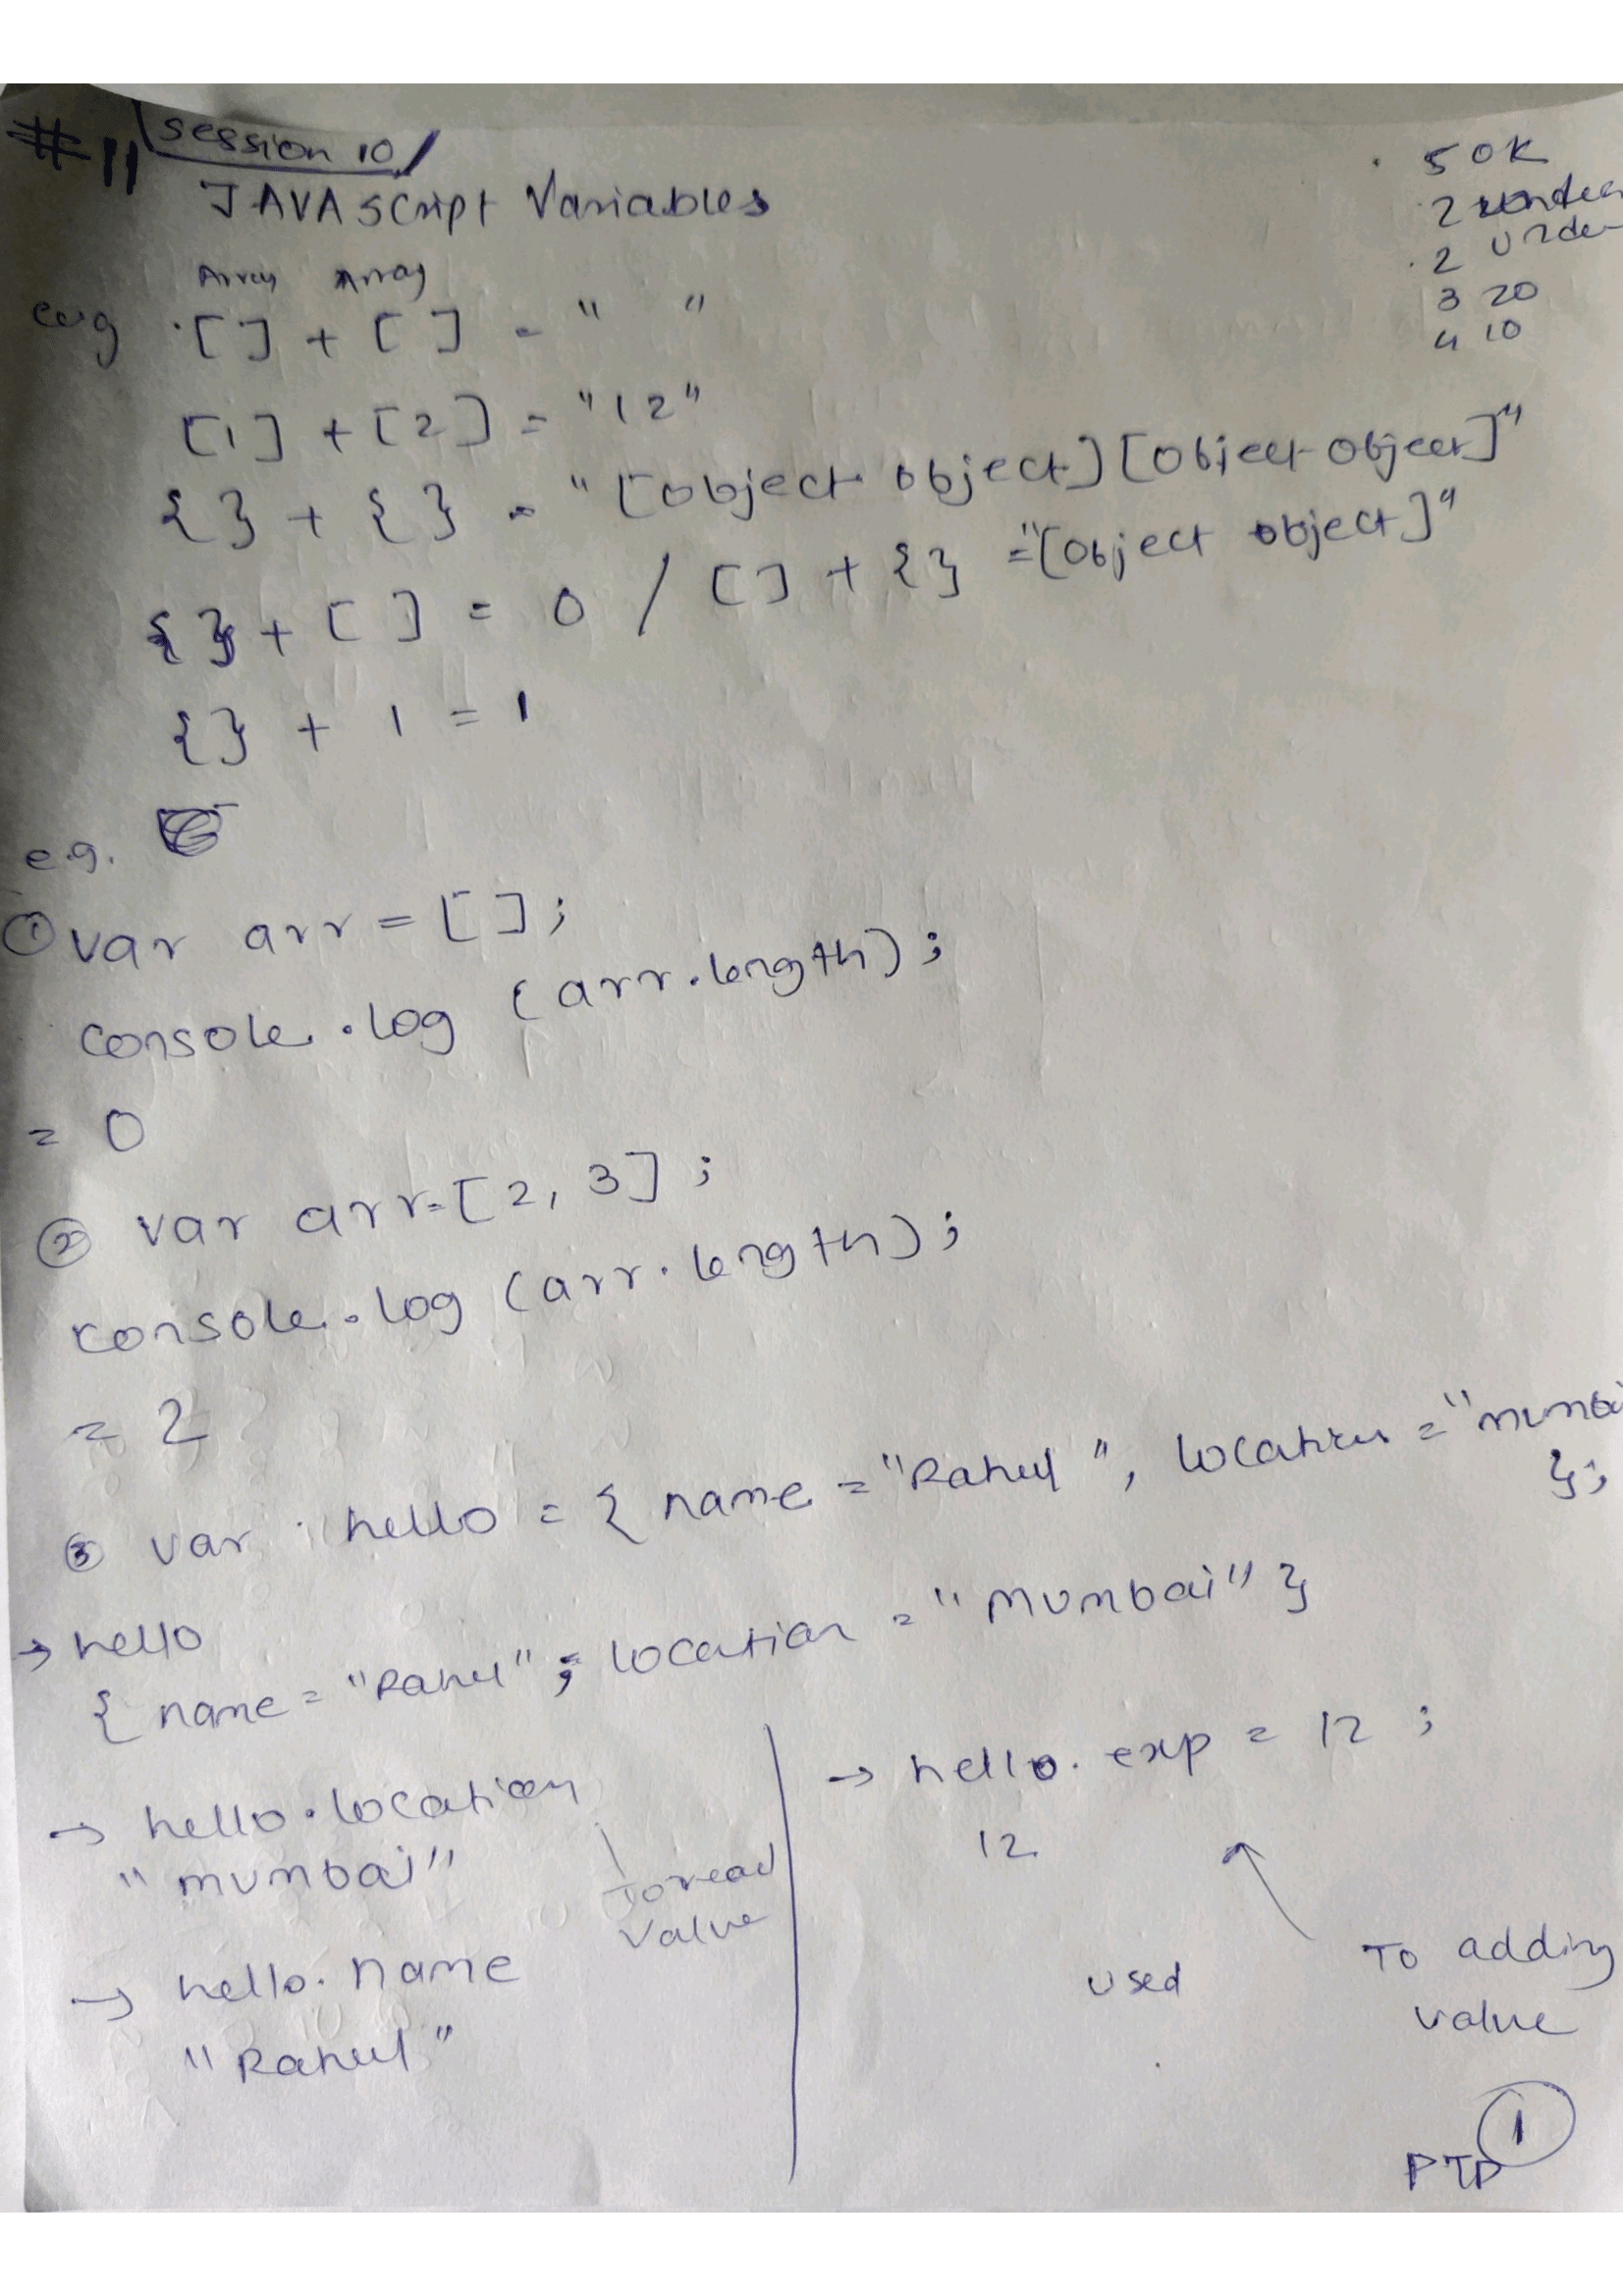 #11 session 10
JAVAscript Variables
50K
2 under
2 under
3 20
4 10
Array Array
eg [] + [] = " "
[1] + [2] = "12"
{} + {} = "[object object][object object]"
{} + [] = 0 / [] + {} = "[object object]"
{} + 1 = 1
e.g.
① var arr = [];
console.log (arr.length);
= 0
② var arr = [2, 3];
console.log (arr.length);
= 2
③ var hello = { name = "Rahul", location = "mumbai
};
→ hello
{ name = "Rahul"; location = "Mumbai" }
→ hello.location
"mumbai"
To read
value
→ hello.name
"Rahul"
→ hello.exp = 12;
12
used
To adding
value
1
PTO